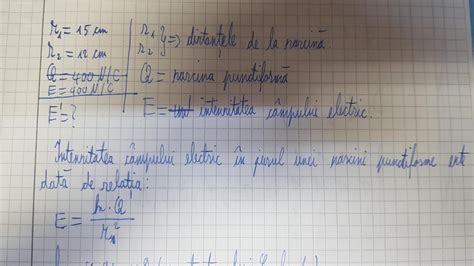 r₁ = 15 cm
r₂ = 12 cm
Q = 400 N/C
E = 400 N/C
E' = ?
r₁
r₂ } => distanțele de la sarcină
Q = sarcina punctiformă
E = intensitatea câmpului electric.
Intensitatea câmpului electric în jurul unei sarcini punctiforme este
dată de relația:
E = k · Q / r₁²